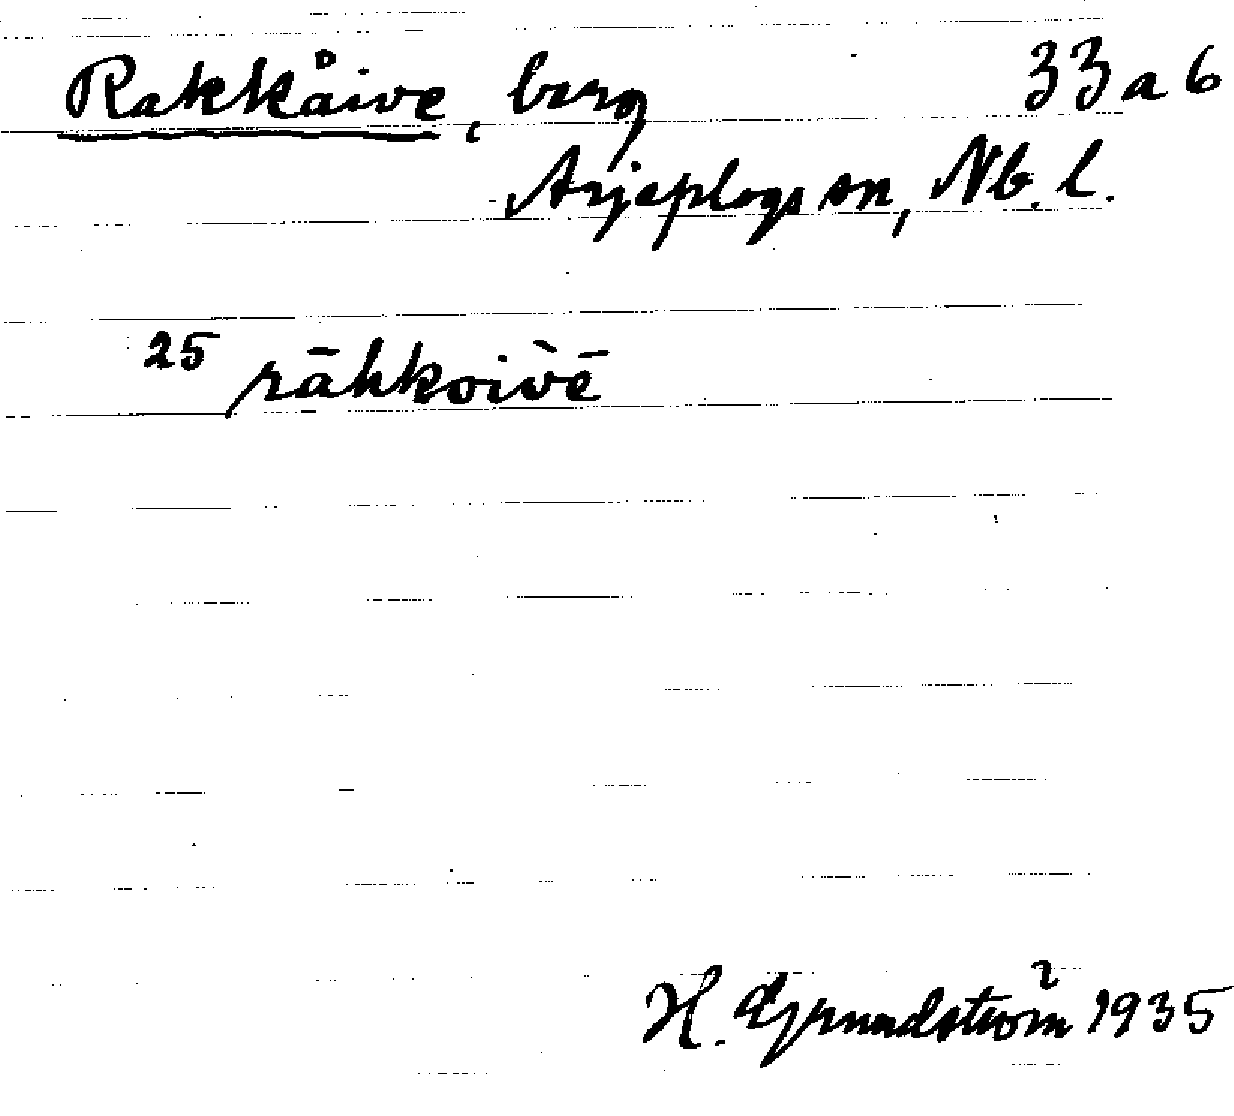 Rakkåive, berg 33 a 6
Arjeplogs sn, Nb. l.
25 rāhkoìvē
H. Grundström 1935